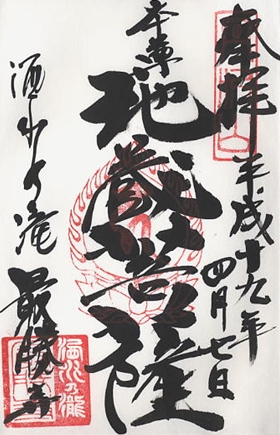 奉拝
平成十九年
四月七日
本尊
地蔵菩薩
洒水の滝
最勝寺
洒水乃瀧